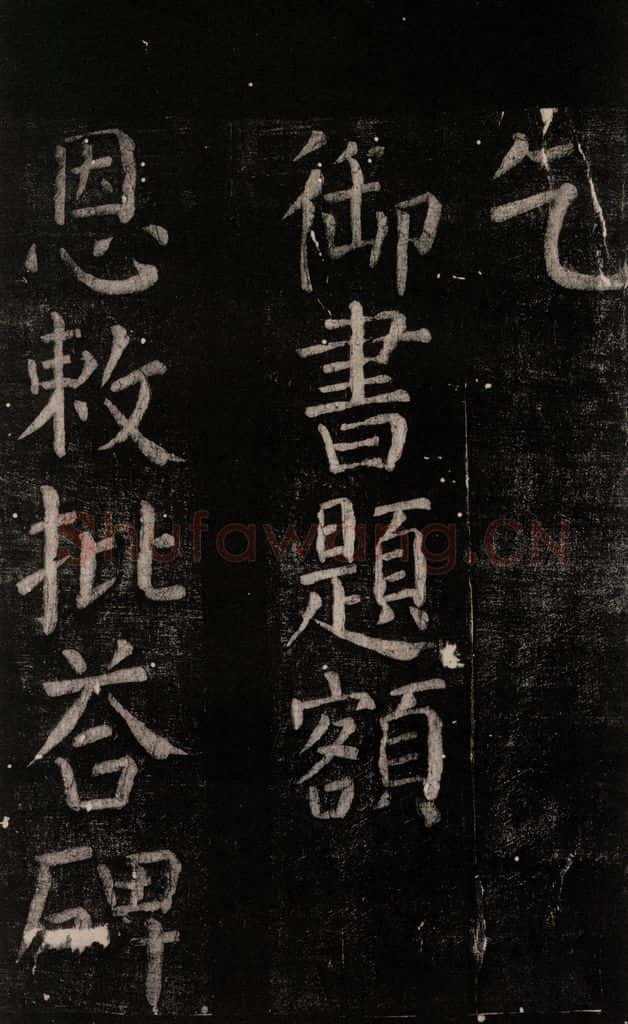 乞
御書題額
恩敕批荅碑
Shufawang.CN